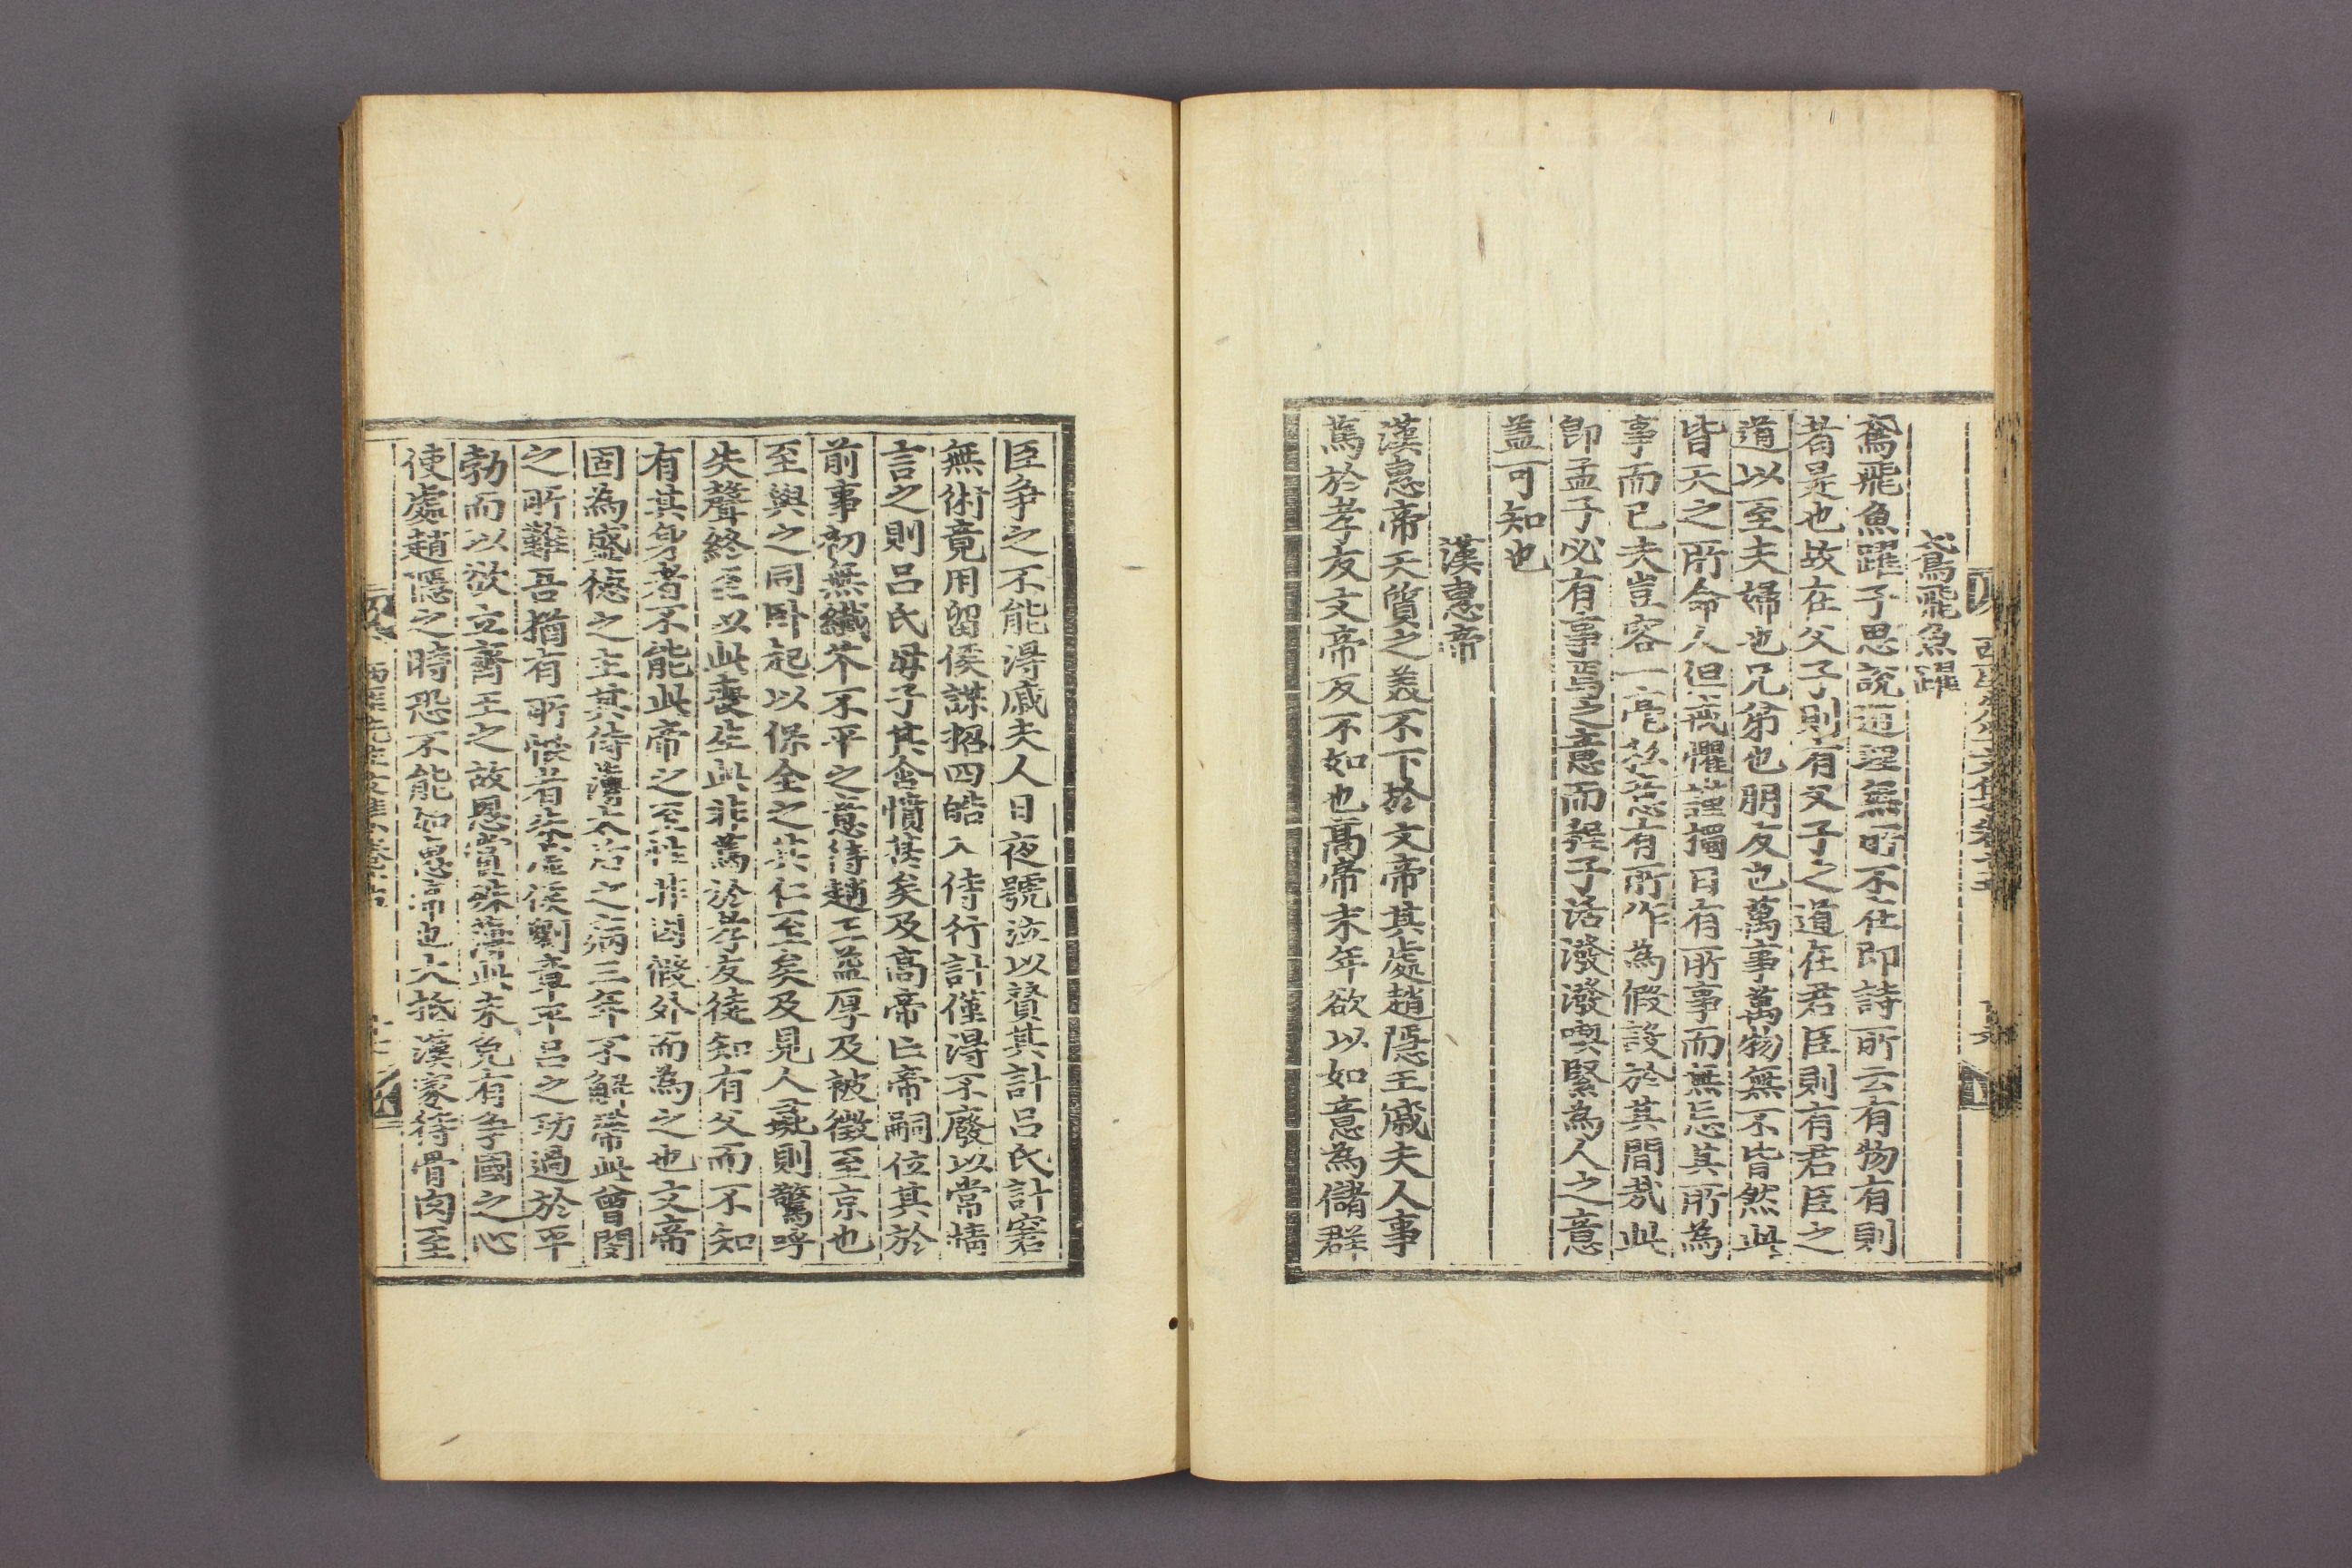 鳶飛魚躍
鳶飛魚躍子思說道理無所不在即詩所云有物有則
者是也故在父子則有父子之道在君臣則有君臣之
道以至夫婦也兄弟也朋友也萬事萬物無不皆然此
皆天之所命人但戒懼謹獨日有所事而無忘其所為
事而已夫豈容一毫私意有所作為假設於其間哉此
即孟子必有事焉之意而程子活潑潑喫緊為人之意
盖可知也
漢惠帝
漢惠帝天質之美不下於文帝其處趙隱王戚夫人事
篤於孝友文帝反不如也高帝末年欲以如意為儲群
臣争之不能得戚夫人日夜號泣以賛其計呂氏計窘
無術竟用留侯謀招四皓入侍行計僅得不廢以常情
言之則呂氏毋子其含憤甚矣及高帝亡帝嗣位其於
前事初無纖芥不平之意待趙王益厚及被徵至京也
至與之同卧起以保全之其仁至矣及見人彘則驚呼
失聲終至以此喪生此非篤於孝友徒知有父而不知
有其身者不能此帝之至性非因假外而為之也文帝
固為盛德之主其侍薄太后之病三年不解帶此曾閔
之所難吾猶有所恨者朱虛侯劉章平呂之功過於平
勃而以欲立齊王之故恩賞殊薄此未免有争國之心
使處趙隱之時恐不能如惠帝也大抵漢家待骨肉至